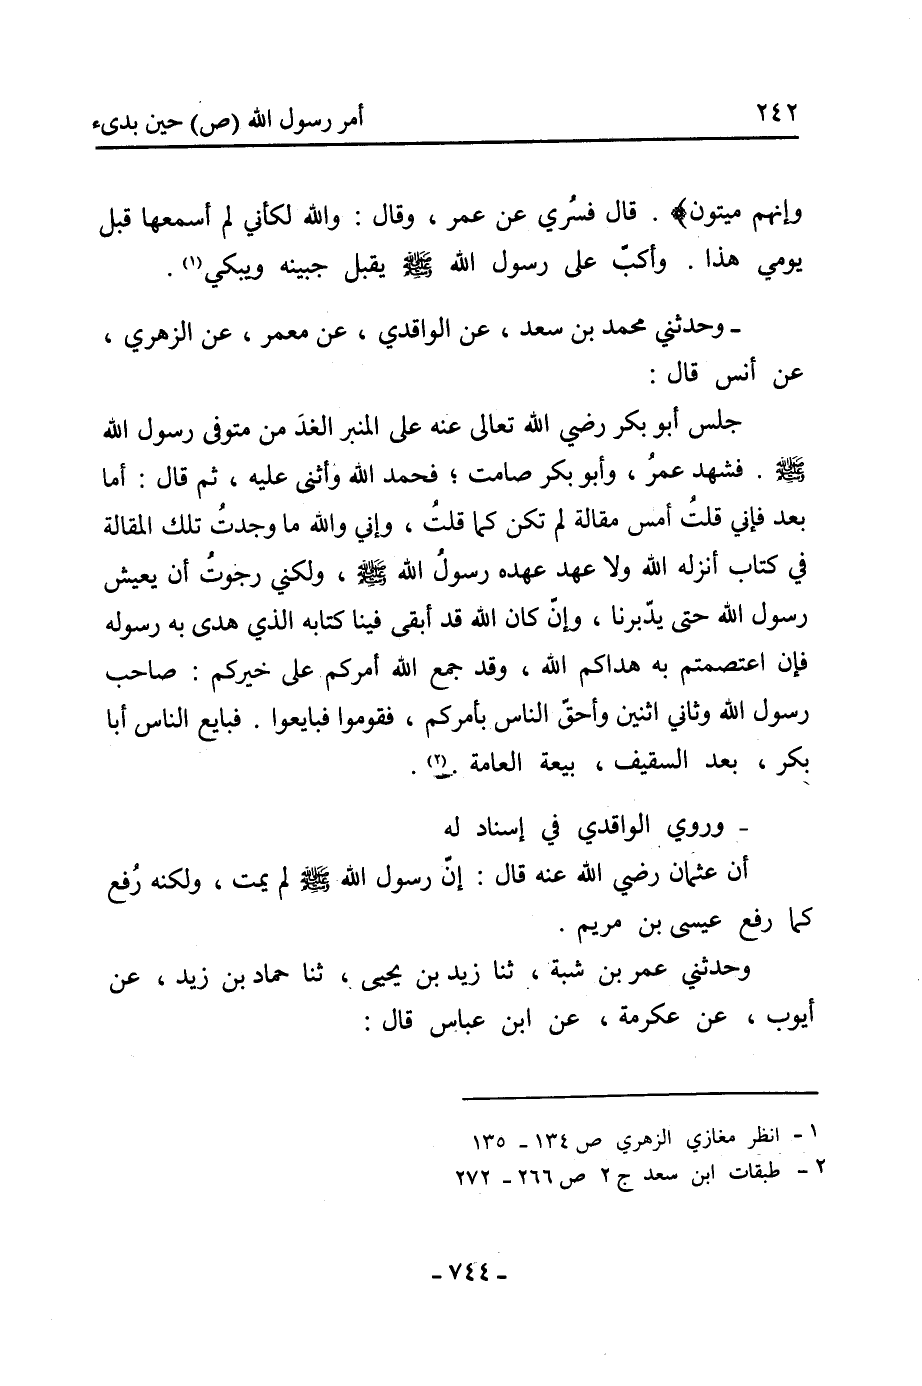 ٢٤٢ أمر رسول الله (ص) حين بدىء
وإنهم ميتون﴾ . قال فسُري عن عمر ، وقال : والله لكأني لم أسمعها قبل
يومي هذا . وأكبّ على رسول الله ﷺ يقبل جبينه ويبكي(١) .
ـ وحدثني محمد بن سعد ، عن الواقدي ، عن معمر ، عن الزهري ،
عن أنس قال :
جلس أبو بكر رضي الله تعالى عنه على المنبر الغدَ من متوفى رسول الله
ﷺ . فشهد عمرُ ، وأبو بكر صامت ؛ فحمد الله وأثنى عليه ، ثم قال : أما
بعد فإني قلتُ أمس مقالة لم تكن كما قلتُ ، وإني والله ما وجدتُ تلك المقالة
في كتاب أنزله الله ولا عهد عهده رسولُ الله ﷺ ، ولكني رجوتُ أن يعيش
رسول الله حتى يدّبرنا ، وإنّ كان الله قد أبقى فينا كتابه الذي هدى به رسوله
فإن اعتصمتم به هداكم الله ، وقد جمع الله أمركم على خيركم : صاحب
رسول الله وثاني اثنين وأحقّ الناس بأمركم ، فقوموا فبايعوا . فبايع الناس أبا
بكر ، بعد السقيف ، بيعة العامة .(٢) .
ـ وروي الواقدي في إسناد له
أن عثمان رضي الله عنه قال : إنّ رسول الله ﷺ لم يمت ، ولكنه رُفع
كما رفع عيسى بن مريم .
وحدثني عمر بن شبة ، ثنا زيد بن يحيى ، ثنا حماد بن زيد ، عن
أيوب ، عن عكرمة ، عن ابن عباس قال :
١ - انظر مغازي الزهري ص ١٣٤ - ١٣٥
٢ - طبقات ابن سعد ج ٢ ص ٢٦٦ - ٢٧٢
- ٧٤٤ -